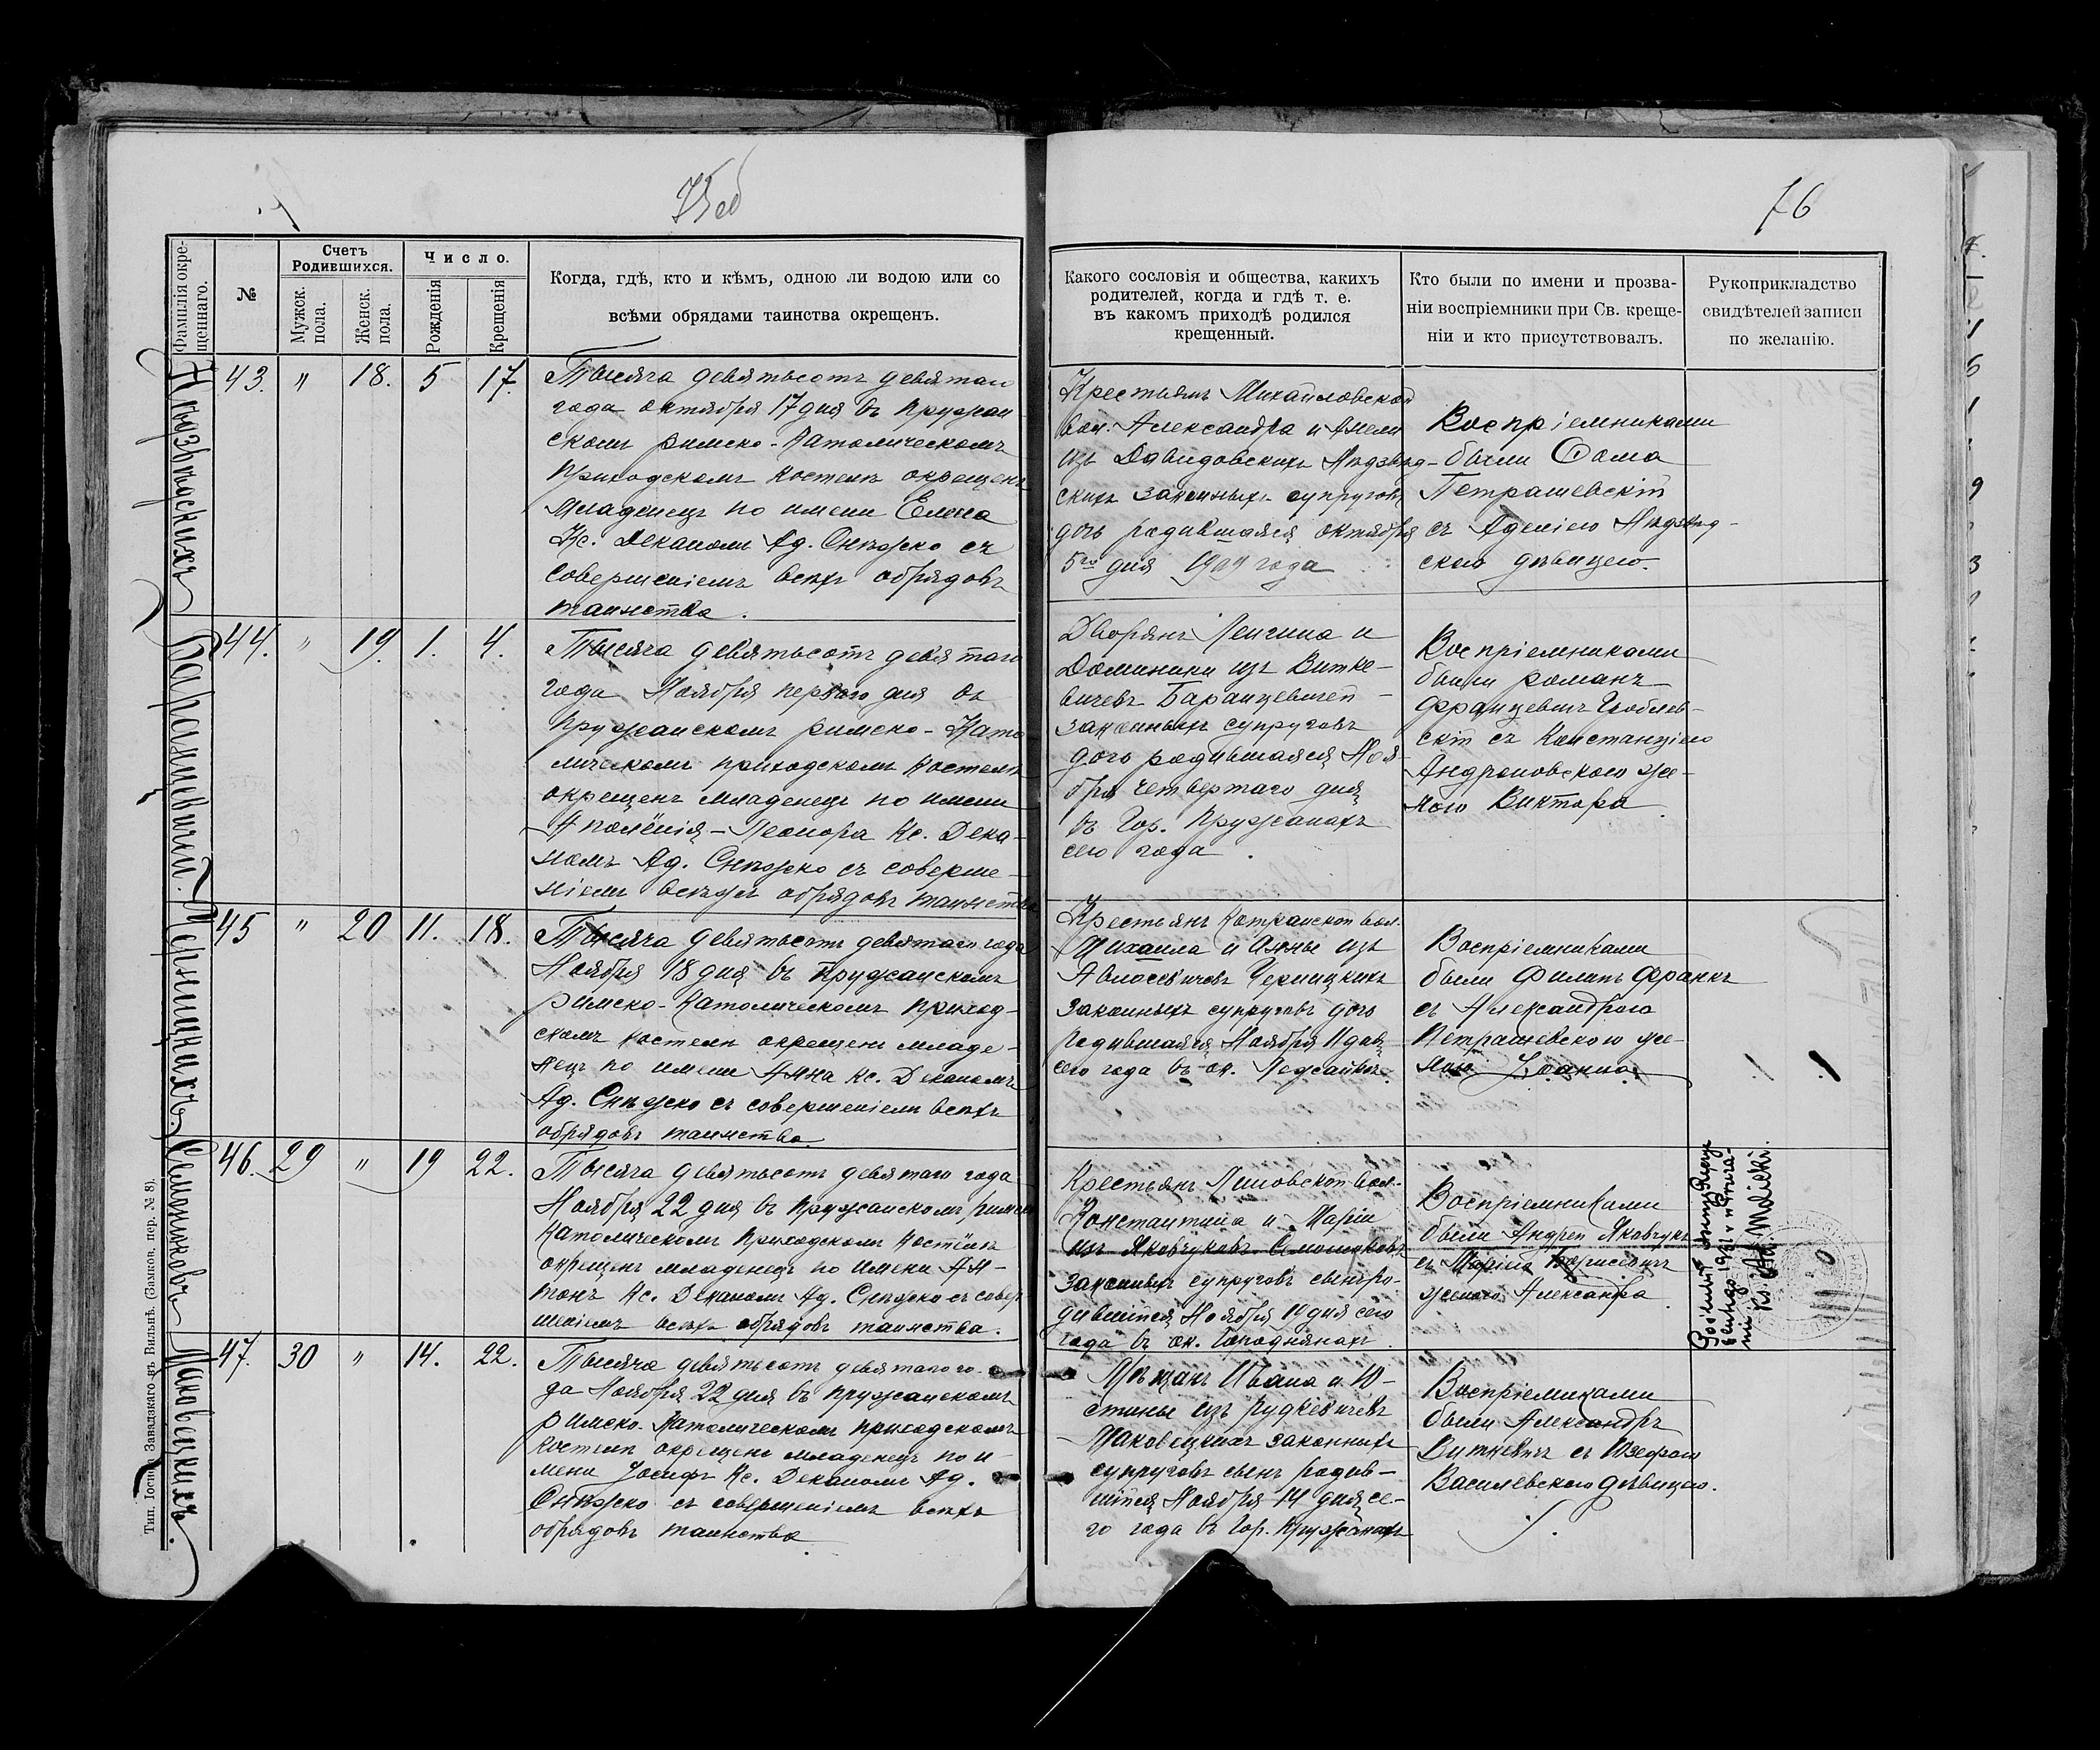 75об
76
Фамилія окре-
щеннаго.
№
Счетъ
Родившихся.
Мужск.
пола.
Женск.
пола.
Число.
Рожденія
Крещенія
Когда, гдѣ, кто и кѣмъ, одною ли водою или со
всѣми обрядами таинства окрещенъ.
Какого сословія и общества, какихъ
родителей, когда и гдѣ т. е.
въ какомъ приходѣ родился
крещенный.
Кто были по имени и прозва-
ніи воспріемники при Св. креще-
ніи и кто присутствовалъ.
Рукоприкладство
свидѣтелей записи
по желанію.
43. " 18. 5 17.
Тысяча девятьсотъ девятаго
года октября 17 дня въ Пружан
скомъ римско-Католическомъ
Приходскомъ костелѣ окрещенъ
младенецъ по имени Елена
Кс. Деканомъ Ад. Снѣжко съ
совершеніемъ всѣхъ обрядовъ
таинства.
Крестьянъ Михайловской
вол. Александра и Амели
изъ Давидовскихъ Нѣдзвѣд-
скихъ законныхъ супруговъ
дочь родившаяся октября
5го дня 1909 года
Воспріемниками
были Ѳома
Петрашевскій
съ Аделію Нѣдзвѣд-
скою дѣвицею.
Барацевичей.
44. " 19. 1. 4.
Тысяча девятьсотъ девятаго
года Ноября перваго дня въ
Пружанскомъ римско-Като
лическомъ приходскомъ костелѣ
окрещенъ младенецъ по имени
Аполёнія-Леонора Кс. Дека-
номъ Ад. Снѣжко съ соверше-
ніемъ всѣхъ обрядовъ таинства
Дворянъ Лонгина и
Доминики изъ Витке-
вичевъ Баранцевичей
законныхъ супруговъ
дочь родившаяся Ноя-
бря четвертаго дня
въ Гор. Пружанахъ
сего года.
Воспріемниками
были романъ
Францевичъ
скій съ Констанціею
Андроновскою же-
ною Виктора
Черницкихъ.
45 " 20 11. 18.
Тысяча девятьсотъ девятаго года
Ноября 18 дня въ Пружанскомъ
римско-Католическомъ Приход-
скомъ костелѣ окрещенъ младе-
нецъ по имени Анна Кс. Деканомъ
Ад. Снѣжко съ совершеніемъ всѣхъ
обрядовъ таинства.
Крестьянъ Котранской вол.
Михаила и Анны изъ
Авлосевичевъ Черницкихъ
законныхъ супруговъ дочь
родившаяся Ноября 11 дня
сего года въ ок.
Воспріемниками
были Филипъ Франкъ
съ Александрою
Петрашевскою же-
ною Іоанна
Семашковъ
46. 29 " 19 22.
Тысяча девятьсотъ девятаго года
Ноября 22 дня въ Пружанскомъ римско
Католическомъ Приходскомъ Костёлѣ
окрещенъ младенецъ по имени Ан-
тонъ Кс. Деканомъ Ад. Снѣжко съ совер
шеніемъ всѣхъ обрядовъ таинства.
Крестьянъ Линовской вол.
Константина и Маріи
изъ Яковчуковъ Семашковъ
законныхъ супруговъ сынъ ро-
дившійся Ноября 19 дня сего
года въ ок.
Воспріемниками
были Андрей Яковчукъ
съ Маріею Борисевичъ
женою Александра
Ks. Ad.
Маковецкихъ.
47. 30 " 14. 22.
Тысяча девятьсотъ девятаго го-
да Ноября 22 дня въ Пружанскомъ
римско-Католическомъ приходскомъ
костелѣ окрещенъ младенецъ по и-
мени Іосифъ Кс. Деканомъ Ад.
Снѣжко съ совершеніемъ всѣхъ
обрядовъ таинства.
Мѣщанъ Ивана и Ю-
стины изъ Рудкевичевъ
Маковецкихъ законныхъ
супруговъ сынъ родив-
шійся Ноября 14 дня се-
го года въ Гор. Пружанахъ
Воспріемниками
были Александръ
Виткевичъ съ Юзефою
Василевскою дѣвицею.
Тип. Іосифа Завадзкаго въ Вильнѣ. (Замков. пер. № 8).